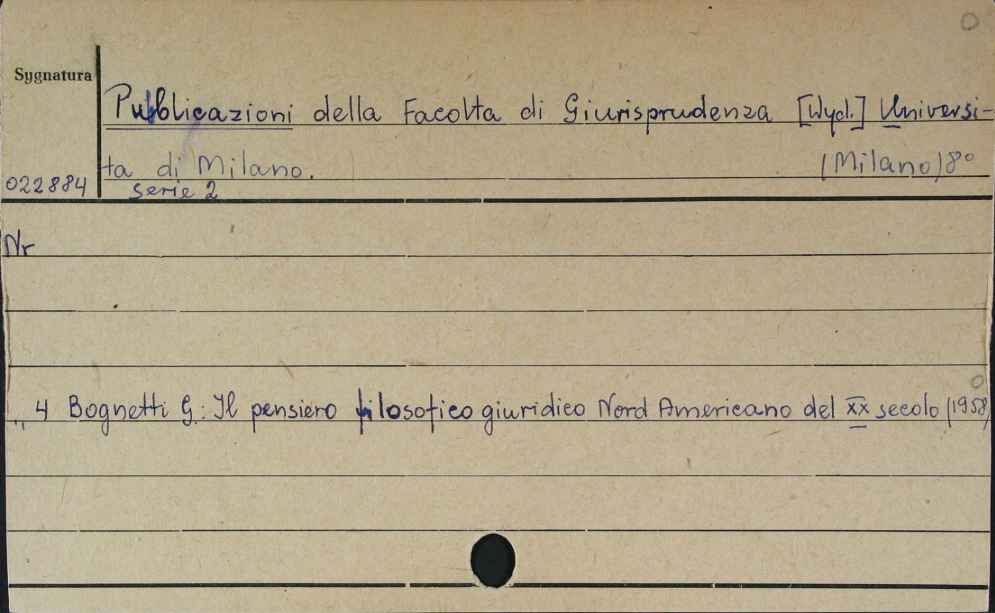 O
Sygnatura
Pubblicazioni della Facolta di Giurisprudenza [Wyd.] Universi-
ta di Milano. (Milano) 8°
022884 Serie 2
Nr
O
„ 4 Bognetti G.: Il pensiero filosofico giuridico Nord Americano del XX secolo (1958)